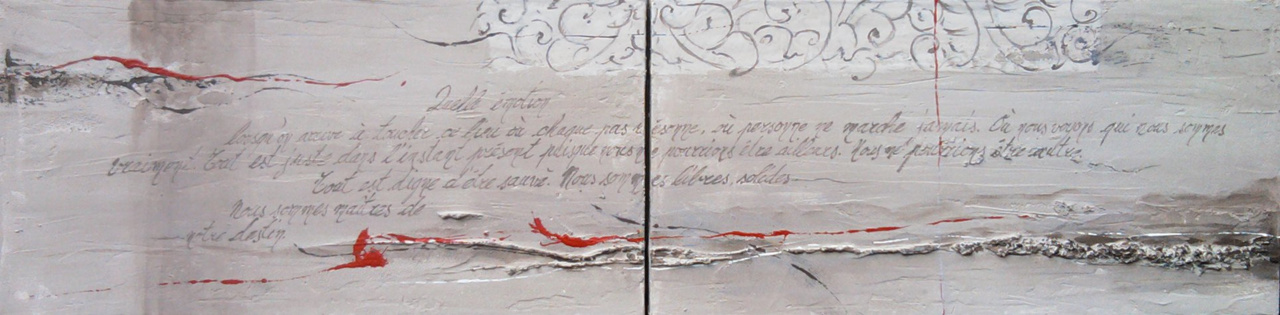 Quelle émotion
lorsqu'on arrive à toucher ce lieu où chaque pas résonne, où personne ne marche jamais. Où nous voyons qui nous sommes
vraiment! Tout est juste dans l'instant présent puisque nous ne pourrions être ailleurs. Nous ne pourrions être autre
Tout est digne d'être sauvé. Nous sommes libres, solides
nous sommes maîtres de
notre destin.